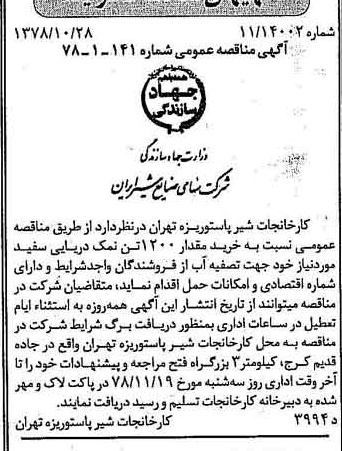 شماره ۱۱/۱۴۰۰۲
۱۳۷۸/۱۰/۲۸
آگهی مناقصه عمومی شماره ۱۴۱-۱-۷۸
همه با هم
جهاد
سازندگی
وزارت جهاد سازندگی
شرکت سهامی صنایع شیر ایران
کارخانجات شیر پاستوریزه تهران درنظردارد از طریق مناقصه
عمومی نسبت به خرید مقدار ۱۲۰۰تن نمک دریایی سفید
موردنیاز خود جهت تصفیه آب از فروشندگان واجدشرایط و دارای
شماره اقتصادی و امکانات حمل اقدام نماید، متقاضیان شرکت در
مناقصه میتوانند از تاریخ انتشار این آگهی همه‌روزه به استثناء ایام
تعطیل در ساعات اداری بمنظور دریافت برگ شرایط شرکت در
مناقصه به محل کارخانجات شیر پاستوریزه تهران واقع در جاده
قدیم کرج، کیلومتر۳ بزرگراه فتح مراجعه و پیشنهادات خود را تا
آخر وقت اداری روز سه‌شنبه مورخ ۷۸/۱۱/۱۹ در پاکت لاک و مهر
شده به دبیرخانه کارخانجات تسلیم و رسید دریافت نمایند.
د ۳۹۹۴
کارخانجات شیر پاستوریزه تهران